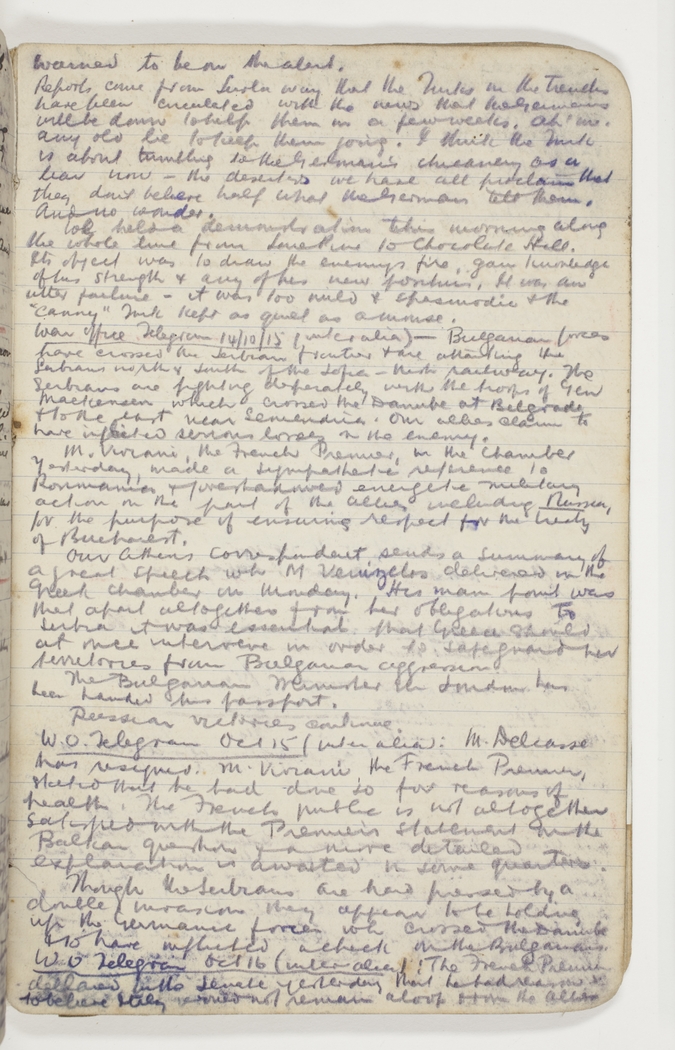 warned to be on the alert.
Reports come from Suvla way that the Turks in the trenches
have been circulated with the news that the Germans
will be down to help them in a few weeks. Ah! me.
any old lie to keep them going. I think the Turk
is about tumbling to the German's chicanery as a
liar now – the deserters we have all proclaim that
they don't believe half what the Germans tell them.
And no wonder.
We held a demonstration this morning along
the whole line from Lone Pine to Chocolate Hill.
Its object was to draw the enemy's fire, gain knowledge
of his strength & any of his new positions. It was an
utter failure – it was too mild & spasmodic & the
"canny" Turk kept as quiet as a mouse.
War Office Telegram 14/10/15 (inter alia) – Bulgarian forces
have crossed the Serbian frontier & are attacking the
Serbians north & south of the Sofia – Nish railway. The
Serbians are fighting desperately with the troops of Gen
Mackensen which crossed the Danube at Belgrade
& to the east near Semendria. Our allies claim to
have inflicted serious losses on the enemy.
M. Viviani, the French Premier, in the Chamber
yesterday, made a sympathetic reference to
Roumania & foreshadowed energetic military
action on the part of the allies including Russia,
for the purpose of ensuring respect for the treaty
of Bucharest.
Our Athens correspondent sends a summary of
a great speech wh M Venizelos delivered in the
Greek Chamber on Monday. His main point was
that apart altogether from her obligations to
Serbia it was essential that Greece should
at once intervene in order to safeguard her
territories from Bulgarian aggression
The Bulgarian Minister in London has
been handed his passport.
Russian victories continue
W.O. Telegram Oct 15 (inter alia): M. Delcasse
has resigned. M. Viviani, the French Premier,
stated that he had done so for reasons of
health. The French public is not altogether
satisfied with the Premier's statement on the
Balkan question & a more detailed
explanation is awaited in some quarters.
Though the Serbians are hard pressed by a
double invasion they appear to be holding
up the Germanic forces wh crossed the Danube
& to have inflicted a check on the Bulgarians.
W.O Telegram Oct 16 (inter alia)! The French Premier
declared in the Senate yesterday that he had reason
to believe Italy would not remain aloof from the Allies